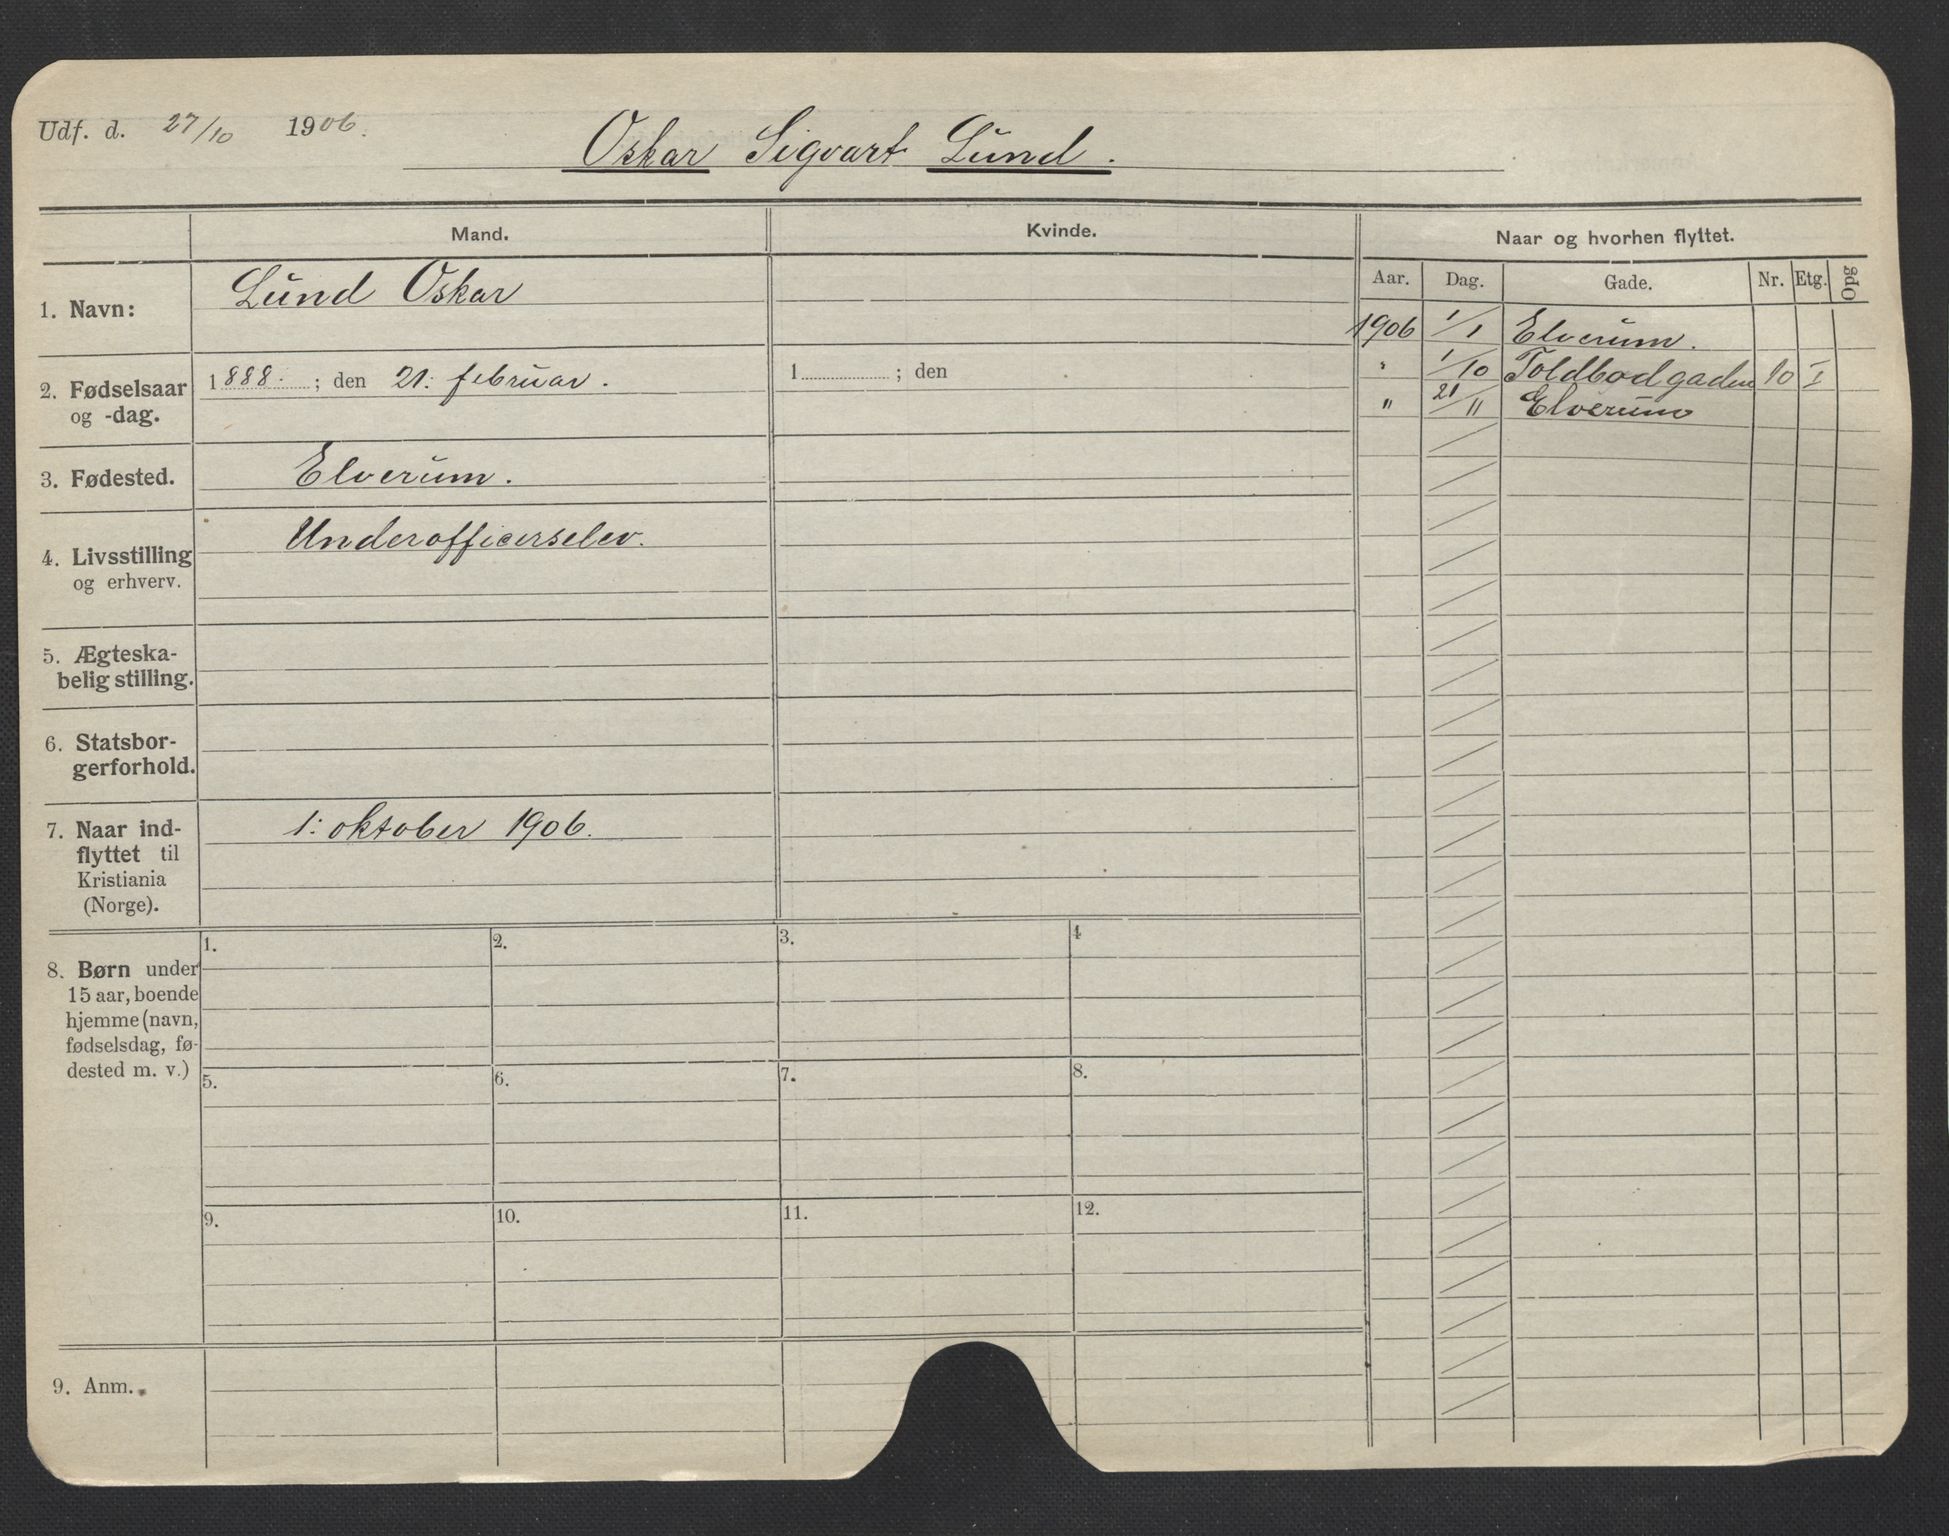 Udf. d. 27/10 1906.
Oskar Sigvart Lund.
Mand.
Kvinde.
Naar og hvorhen flyttet.
Aar. Dag. Gade. Nr. Etg. Opg
1. Navn: Lund Oskar
1906 1/1 Elverum.
" 1/10 Toldbodgaden 10 I
" 21/11 Elverum
2. Fødselsaar og -dag.
1888. ; den 21. februar.
1 ; den
3. Fødested. Elverum.
4. Livsstilling og erhverv.
Underofficerselev.
5. Ægteska-
belig stilling.
6. Statsbor-
gerforhold.
7. Naar ind-
flyttet til
Kristiania
(Norge).
1. oktober 1906.
8. Børn under
15 aar, boende
hjemme (navn,
fødselsdag, fø-
dested m. v.)
1. 2. 3. 4
5. 6. 7. 8.
9. 10. 11. 12.
9. Anm.